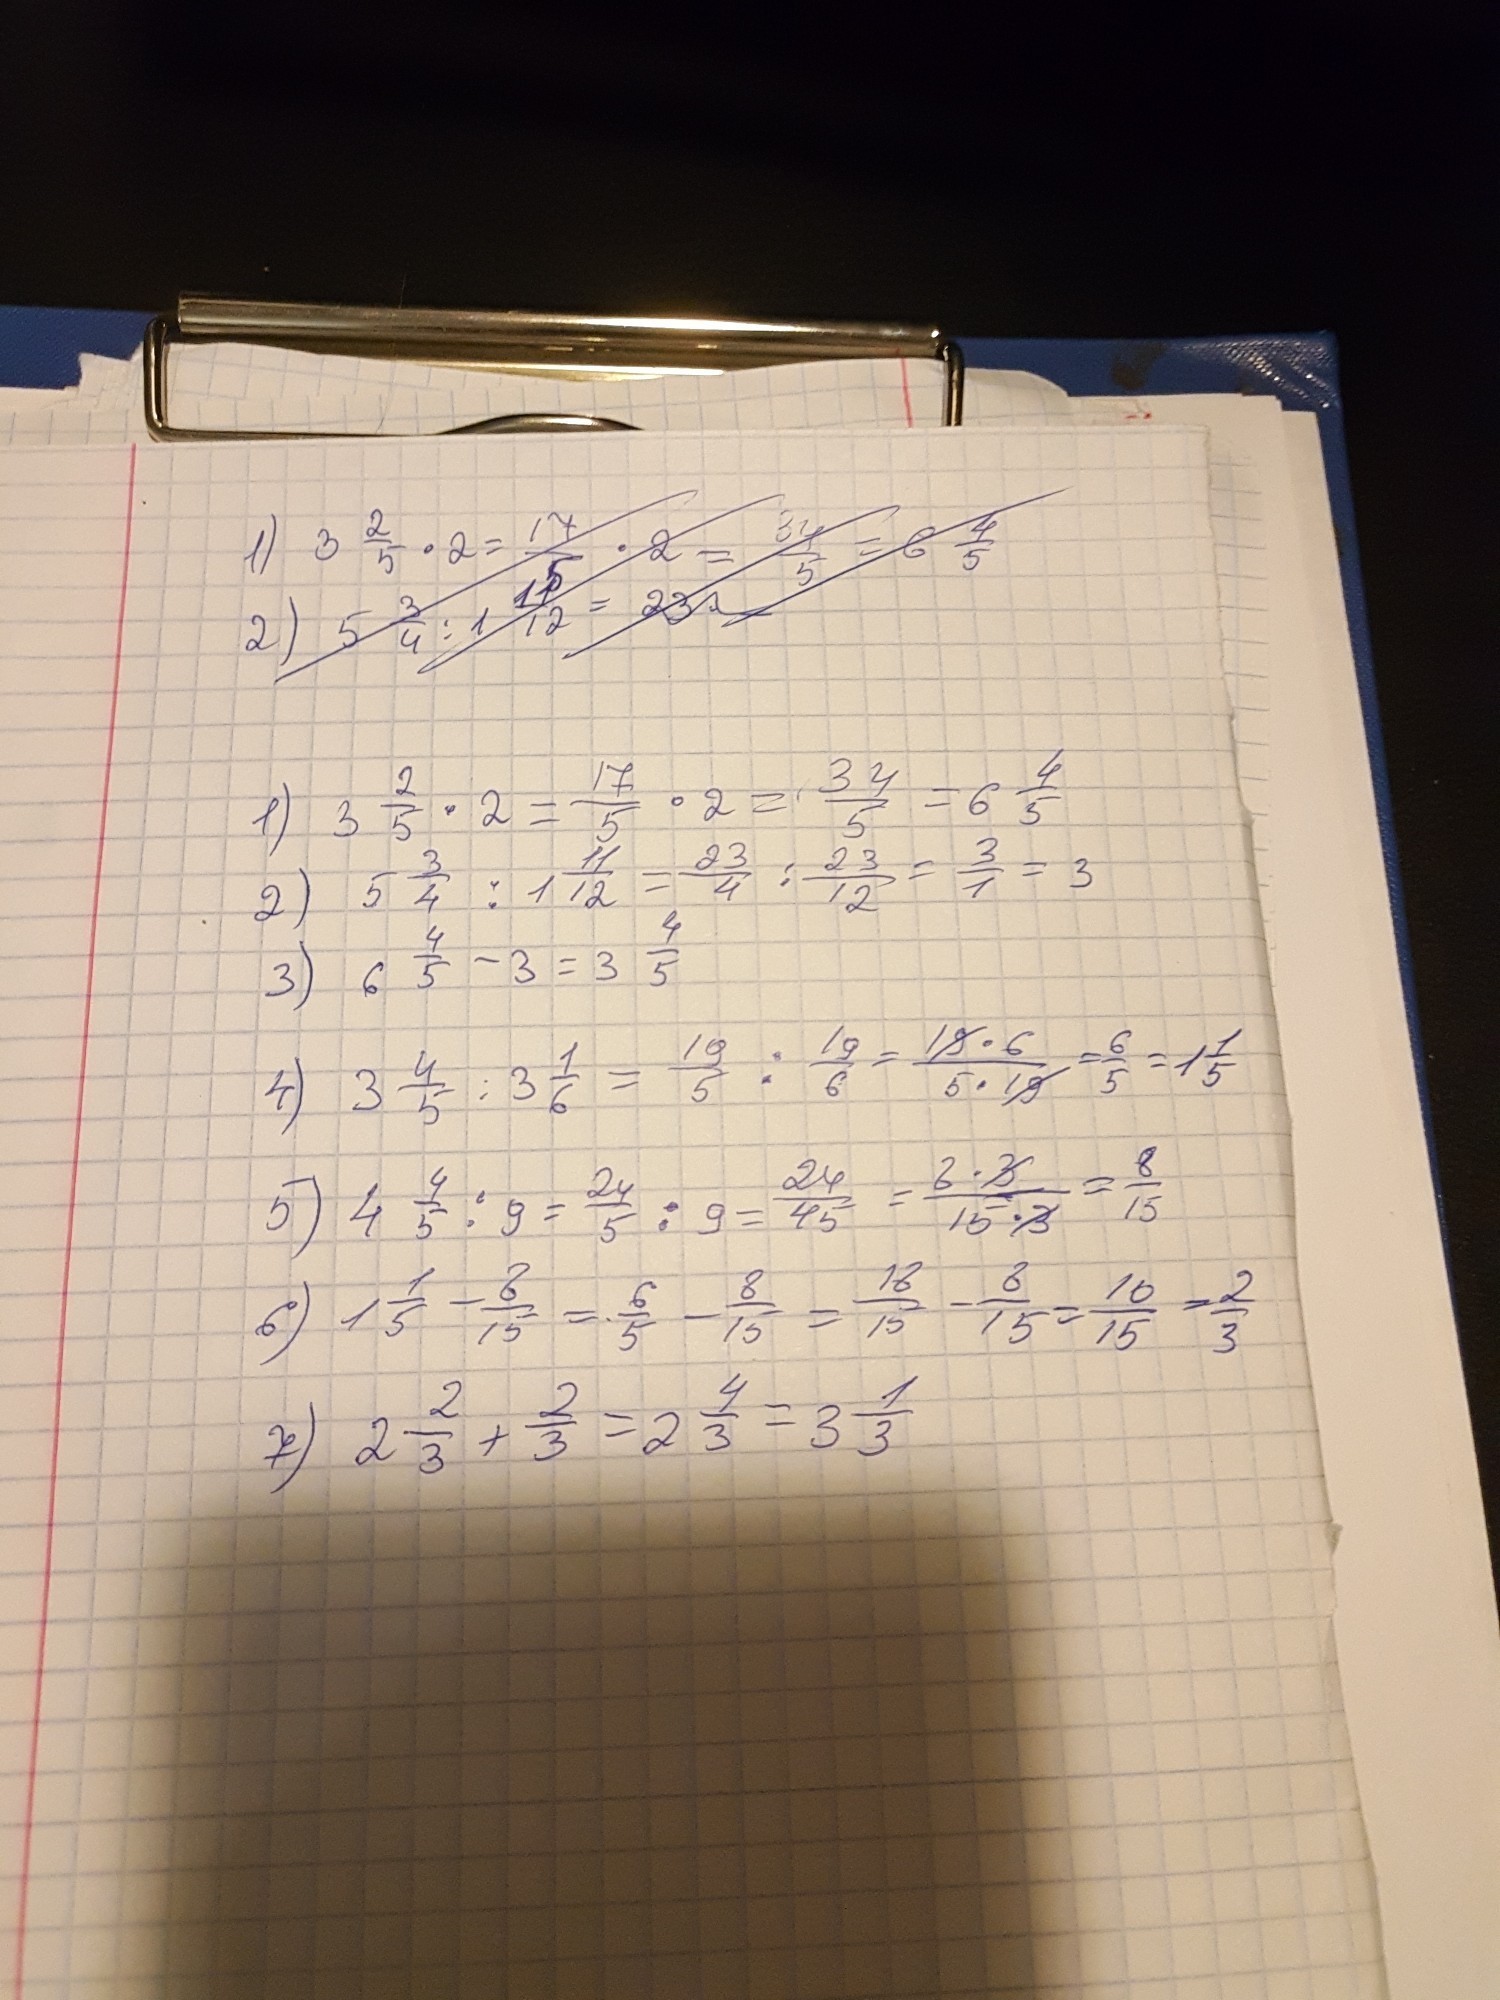 1) 3 2/5 · 2 = 17/5 · 2 = 34/5 = 6 4/5
2) 5 3/4 : 1 11/12 = 23
1) 3 2/5 · 2 = 17/5 · 2 = 34/5 = 6 4/5
2) 5 3/4 : 1 11/12 = 23/4 : 23/12 = 3/1 = 3
3) 6 4/5 - 3 = 3 4/5
4) 3 4/5 : 3 1/6 = 19/5 : 19/6 = 19·6/5·19 = 6/5 = 1 1/5
5) 4 4/5 : 9 = 24/5 : 9 = 24/45 = 8·3/15·3 = 8/15
6) 1 1/5 - 8/15 = 6/5 - 8/15 = 18/15 - 8/15 = 10/15 = 2/3
7) 2 2/3 + 2/3 = 2 4/3 = 3 1/3